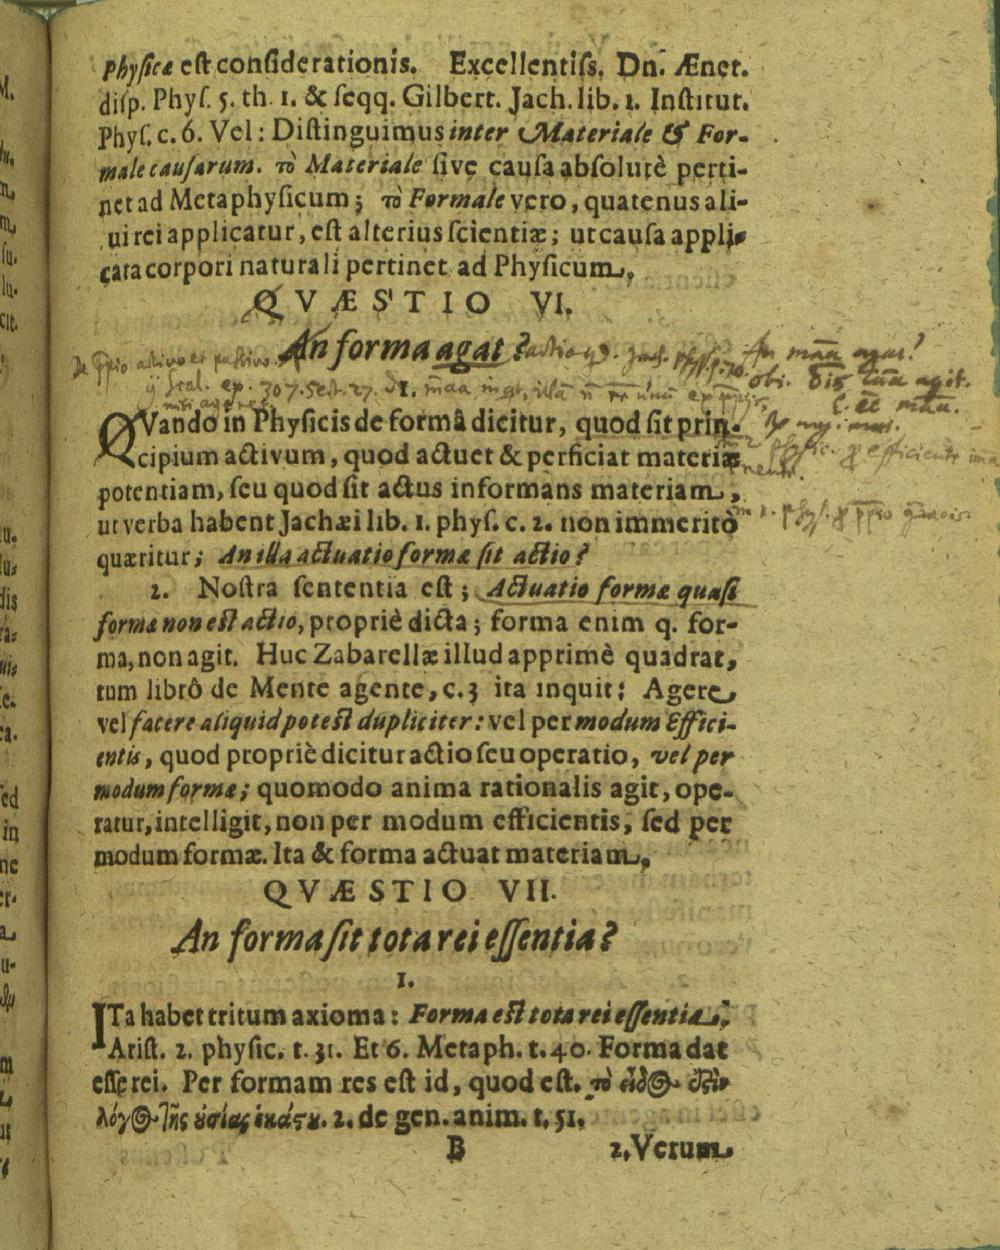 Physicæ est considerationis. Excellentiss. Dn. Ænet.
disp. Phys. 5. th. 1. & seqq. Gilbert. Jach. lib. 1. Institut.
Phys. c. 6. Vel: Distinguimus inter Materiale & For-
male causarum. τὸ Materiale sive causa absolutè perti-
net ad Metaphysicum; τὸ Formale vero, quatenus ali-
cui rei applicatur, est alterius scientiæ; ut causa appli-
cata corpori naturali pertinet ad Physicum.
QVÆSTIO VI.
An forma agat?
QVando in Physicis de formâ dicitur, quod sit prin-
cipium activum, quod actuet & perficiat materiæ
potentiam, seu quod sit actus informans materiam,
ut verba habent Jachæi lib. 1. phys. c. 2. non immeritò
quæritur; An illa actuatio formæ sit actio?
2. Nostra sententia est; Actuatio formæ quasi
forma non est actio, propriè dicta; forma enim q. for-
ma, non agit. Huc Zabarellæ illud apprimè quadrat,
tum librô de Mente agente, c. 3 ita inquit: Agere
vel facere aliquid potest dupliciter: vel per modum Effici-
entis, quod propriè dicitur actio seu operatio, vel per
modum formæ; quomodo anima rationalis agit, ope-
ratur, intelligit, non per modum efficientis, sed per
modum formæ. Ita & forma actuat materiam.
QVÆSTIO VII.
An forma sit tota rei essentia?
1.
ITa habet tritum axioma: Forma est tota rei essentia.
Arist. 2. physic. t. 31. Et 6. Metaph. t. 40. Forma dat
esse rei. Per formam res est id, quod est. τὸ εἶδος ἐστὶν
λόγος τῆς οὐσίας ἑκάστου. 2. de gen. anim. t. 51.
B 2. Verum